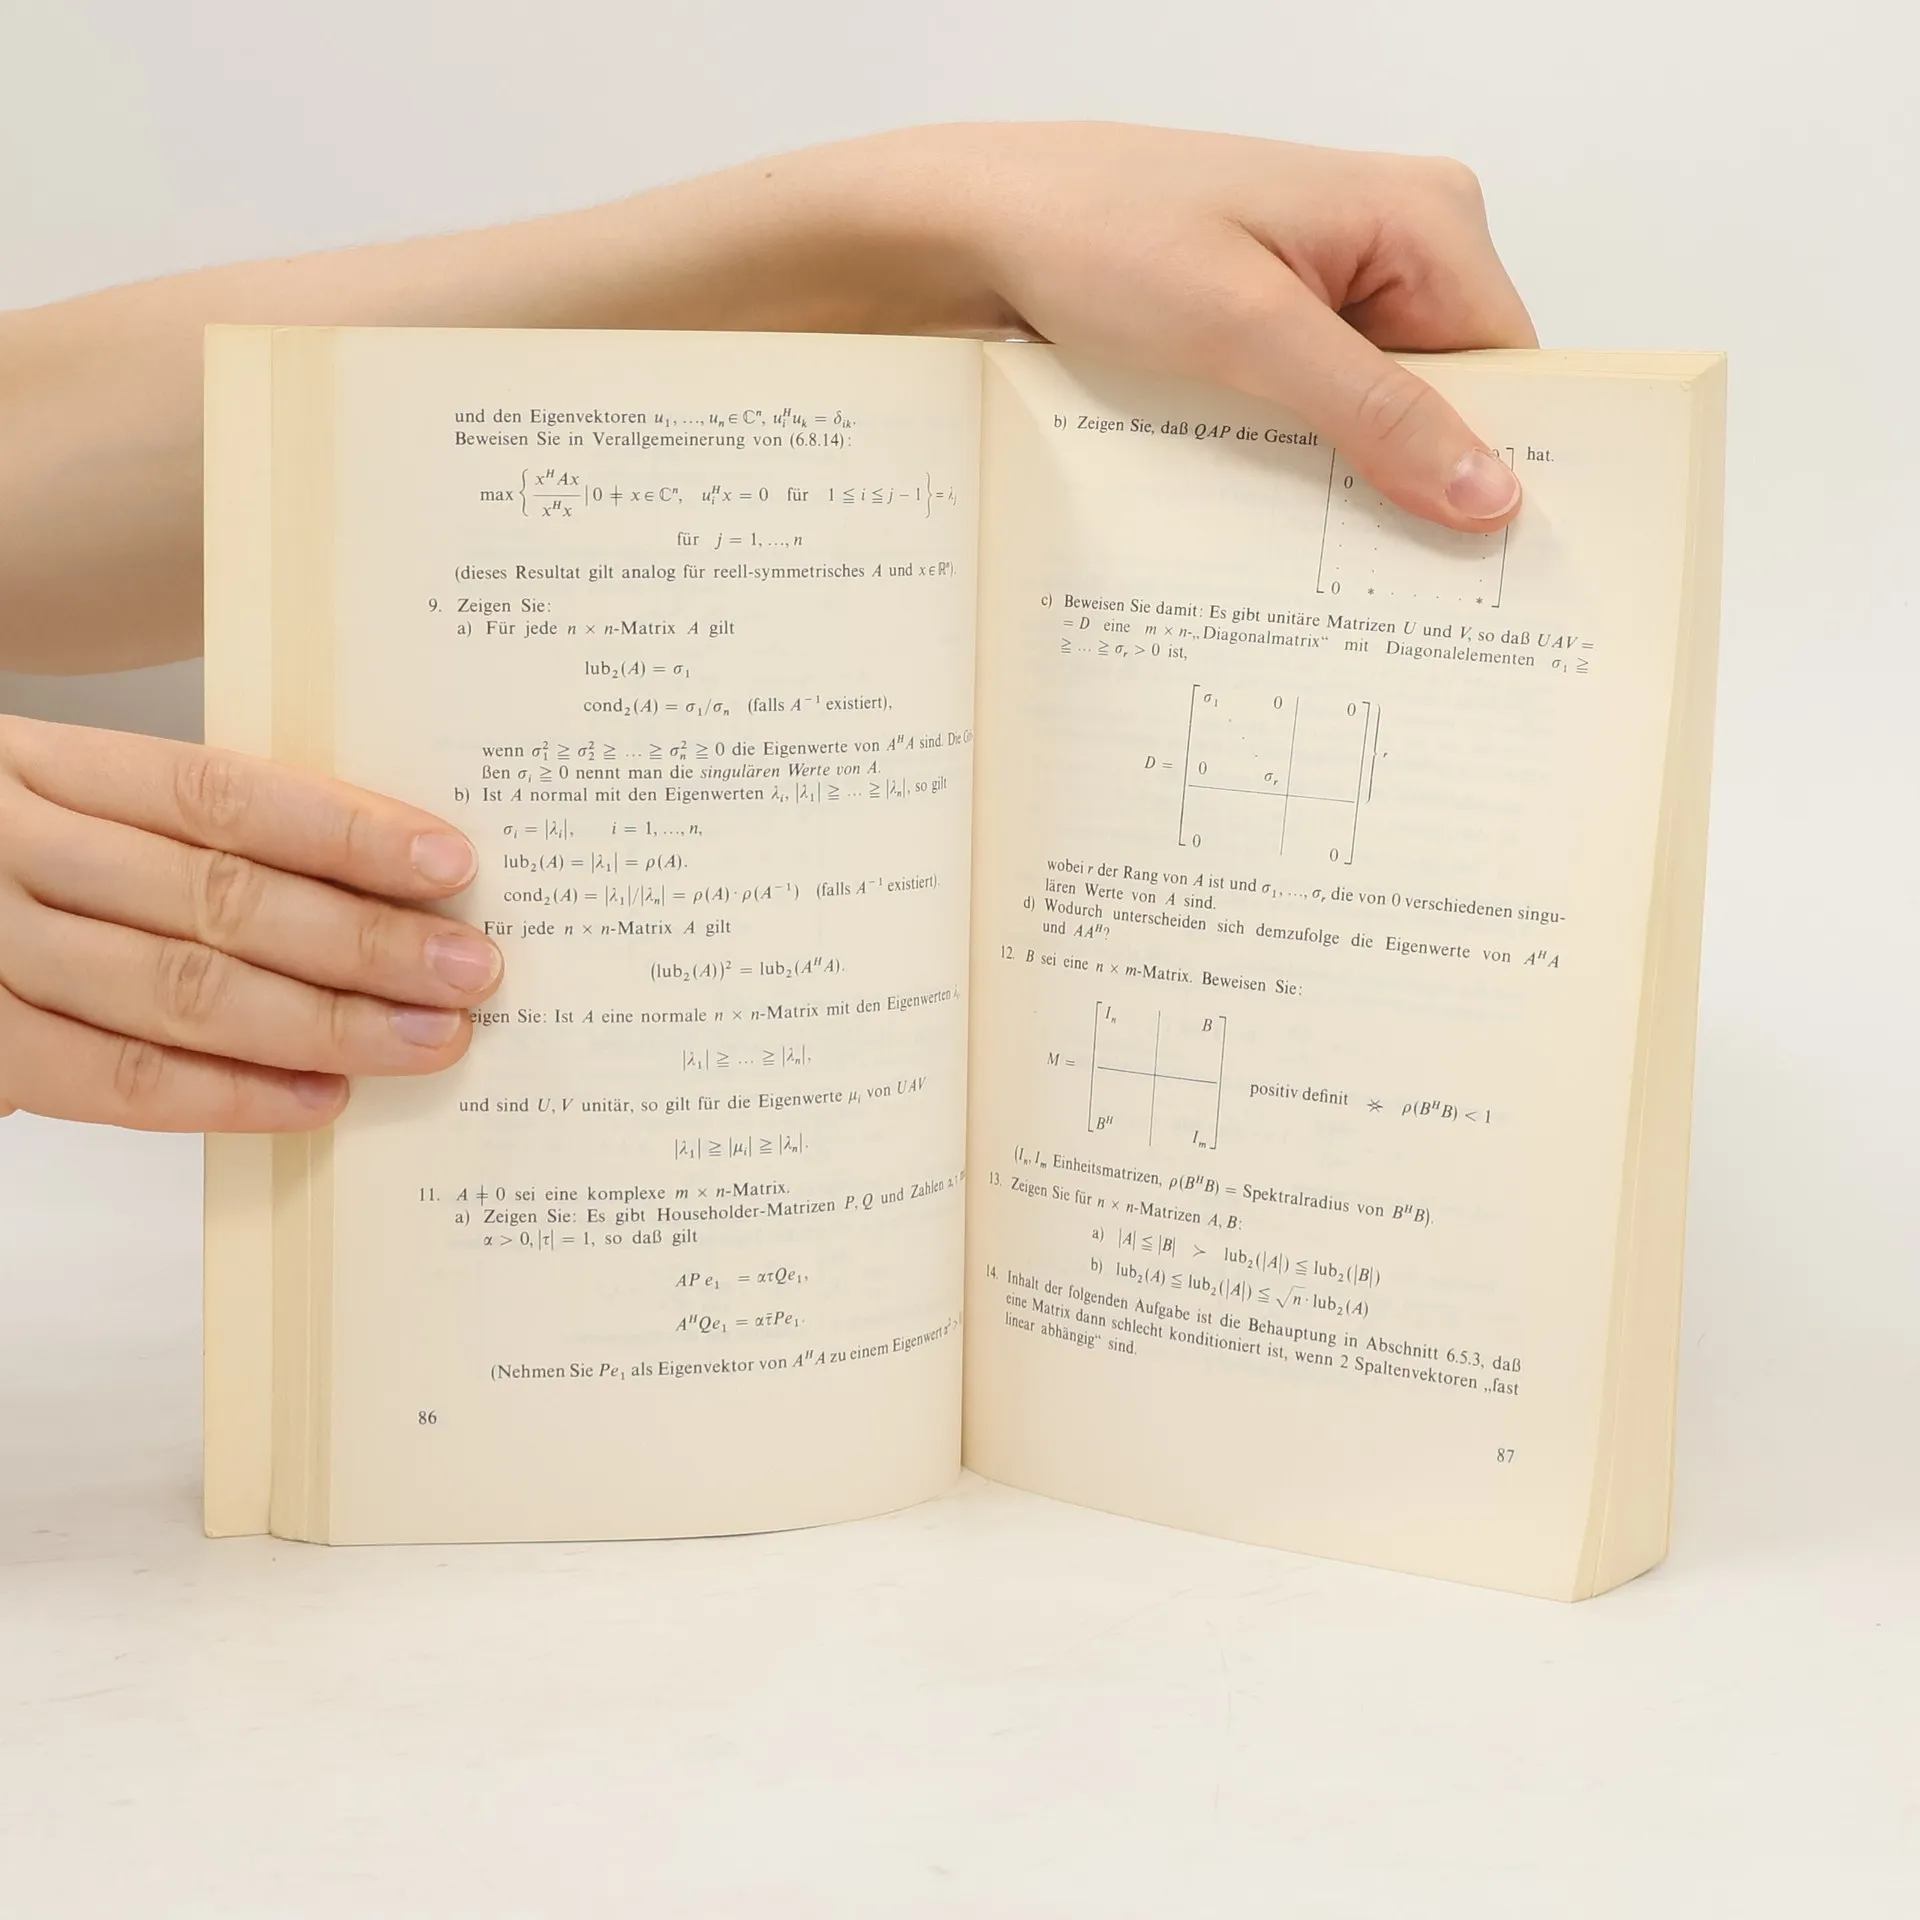 und den Eigenvektoren u₁, ..., uₙ ∈ ℂⁿ, uᵢᴴuₖ = δᵢₖ.
Beweisen Sie in Verallgemeinerung von (6.8.14):
max { xᴴAx / xᴴx | 0 ≠ x ∈ ℂⁿ, uᵢᴴx = 0 für 1 ≦ i ≦ j − 1 } = λⱼ
für j = 1, ..., n
(dieses Resultat gilt analog für reell-symmetrisches A und x ∈ ℝⁿ).
9. Zeigen Sie:
a) Für jede n × n-Matrix A gilt
lub₂(A) = σ₁
cond₂(A) = σ₁/σₙ (falls A⁻¹ existiert),
wenn σ₁² ≧ σ₂² ≧ ... ≧ σₙ² ≧ 0 die Eigenwerte von AᴴA sind. Die
ßen σᵢ ≧ 0 nennt man die singulären Werte von A.
b) Ist A normal mit den Eigenwerten λᵢ, |λ₁| ≧ ... ≧ |λₙ|, so gilt
σᵢ = |λᵢ|, i = 1, ..., n,
lub₂(A) = |λ₁| = ρ(A).
cond₂(A) = |λ₁|/|λₙ| = ρ(A) · ρ(A⁻¹) (falls A⁻¹ existiert).
Für jede n × n-Matrix A gilt
(lub₂(A))² = lub₂(AᴴA).
eigen Sie: Ist A eine normale n × n-Matrix mit den Eigenwerten λᵢ
|λ₁| ≧ ... ≧ |λₙ|,
und sind U, V unitär, so gilt für die Eigenwerte μᵢ von UAV
|λ₁| ≧ |μᵢ| ≧ |λₙ|.
11. A ≠ 0 sei eine komplexe m × n-Matrix.
a) Zeigen Sie: Es gibt Householder-Matrizen P, Q und Zahlen
α > 0, |τ| = 1, so daß gilt
AP e₁ = ατQe₁,
AᴴQe₁ = ατ̄Pe₁.
(Nehmen Sie Pe₁ als Eigenvektor von AᴴA zu einem Eigenwert α² >
86
b) Zeigen Sie, daß QAP die Gestalt
hat.
0
0 * . . . . *
c) Beweisen Sie damit: Es gibt unitäre Matrizen U und V, so daß UAV =
= D eine m × n-„Diagonalmatrix“ mit Diagonalelementen σ₁ ≧
≧ ... ≧ σᵣ > 0 ist,
σ₁ 0 0
D = 0 σᵣ r
0 0
wobei r der Rang von A ist und σ₁, ..., σᵣ die von 0 verschiedenen singu-
lären Werte von A sind.
d) Wodurch unterscheiden sich demzufolge die Eigenwerte von AᴴA
und AAᴴ?
12. B sei eine n × m-Matrix. Beweisen Sie:
Iₙ B
M = positiv definit ρ(BᴴB) < 1
Bᴴ Iₘ
(Iₙ, Iₘ Einheitsmatrizen, ρ(BᴴB) = Spektralradius von BᴴB).
13. Zeigen Sie für n × n-Matrizen A, B:
a) |A| ≦ |B| > lub₂(|A|) ≦ lub₂(|B|)
b) lub₂(A) ≦ lub₂(|A|) ≦ √n · lub₂(A)
14. Inhalt der folgenden Aufgabe ist die Behauptung in Abschnitt 6.5.3, daß
eine Matrix dann schlecht konditioniert ist, wenn 2 Spaltenvektoren „fast
linear abhängig“ sind.
87